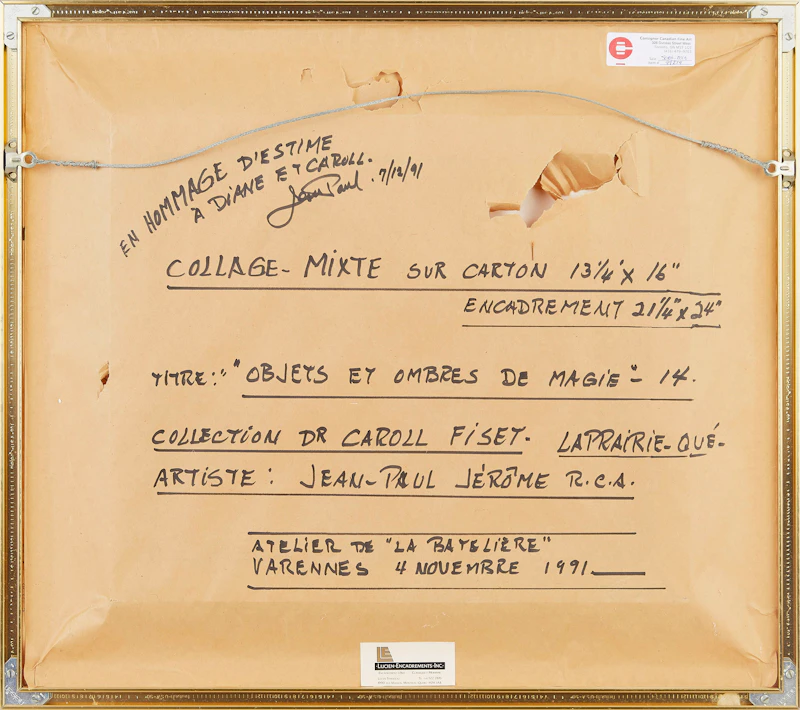 Consignor Canadian Fine Art
EN HOMMAGE D'ESTIME
À DIANE ET CAROLL.
Jean Paul. 7/12/91
COLLAGE- MIXTE SUR CARTON 13 1/4" X 16"
ENCADREMENT 21 1/4" X 24"
TITRE: " OBJETS ET OMBRES DE MAGIE"- 14.
COLLECTION DR CAROLL FISET- LAPRAIRIE-QUÉ-
ARTISTE: JEAN-PAUL JÉRÔME R.C.A.
ATELIER DE "LA BATELIÈRE"
VARENNES 4 NOVEMBRE 1991
LUCIEN-ENCADREMENTS-INC-